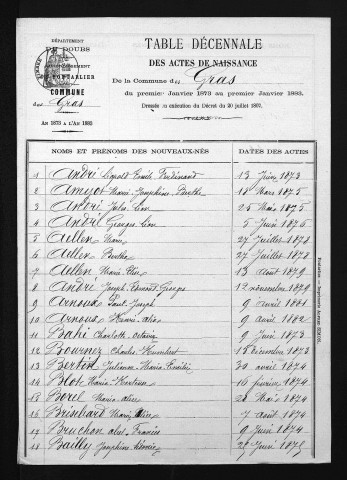 DÉPARTEMENT
DU DOUBS
TABLE DÉCENNALE
DES ACTES DE NAISSANCE
ARRONDISSEMENT
DE PONTARLIER
COMMUNE
des Gras
De la Commune des Gras
du premier Janvier 1873 au premier Janvier 1883.
Dressée en exécution du Décret du 20 juillet 1807.
AN 1873 A L'AN 1883
NOMS ET PRÉNOMS DES NOUVEAUX-NÉS DATES DES ACTES
1 André Léopold Emile Ferdinand 13 Juin 1873
2 Amyot Marie Joséphine Berthe 18 Mars 1875
3 André Jules Léon 25 Mai 1875
4 André Georges Léon 5 Juin 1876
5 Aullen 27 Juillet 1878
6 Aullen Berthe 27 Juillet 1878
7 Aullen Marie Elise 13 Août 1879
8 André Joseph Edmond Georges 12 novembre 1879
9 Arnoux Paul Joseph 9 avril 1881
10 Arnoux Henri 9 avril 1882
11 Bahi Charlotte 9 Juin 1873
12 Bournez Charles Humbert 18 Décembre 1873
13 Bertin Julienne Marie Emilie 30 avril 1874
14 Blot Maria 16 février 1874
15 Borel Maria 28 Mai 1874
16 Brinbard Marie 7 Août 1874
17 Bruchon Francis 9 Juin 1874
18 Bailly Joséphine 24 Juin 1875